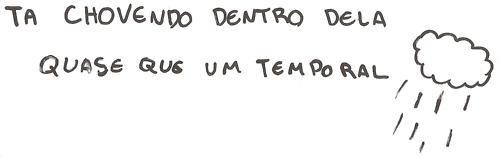 TA CHOVENDO DENTRO DELA
QUASE QUE UM TEMPORAL